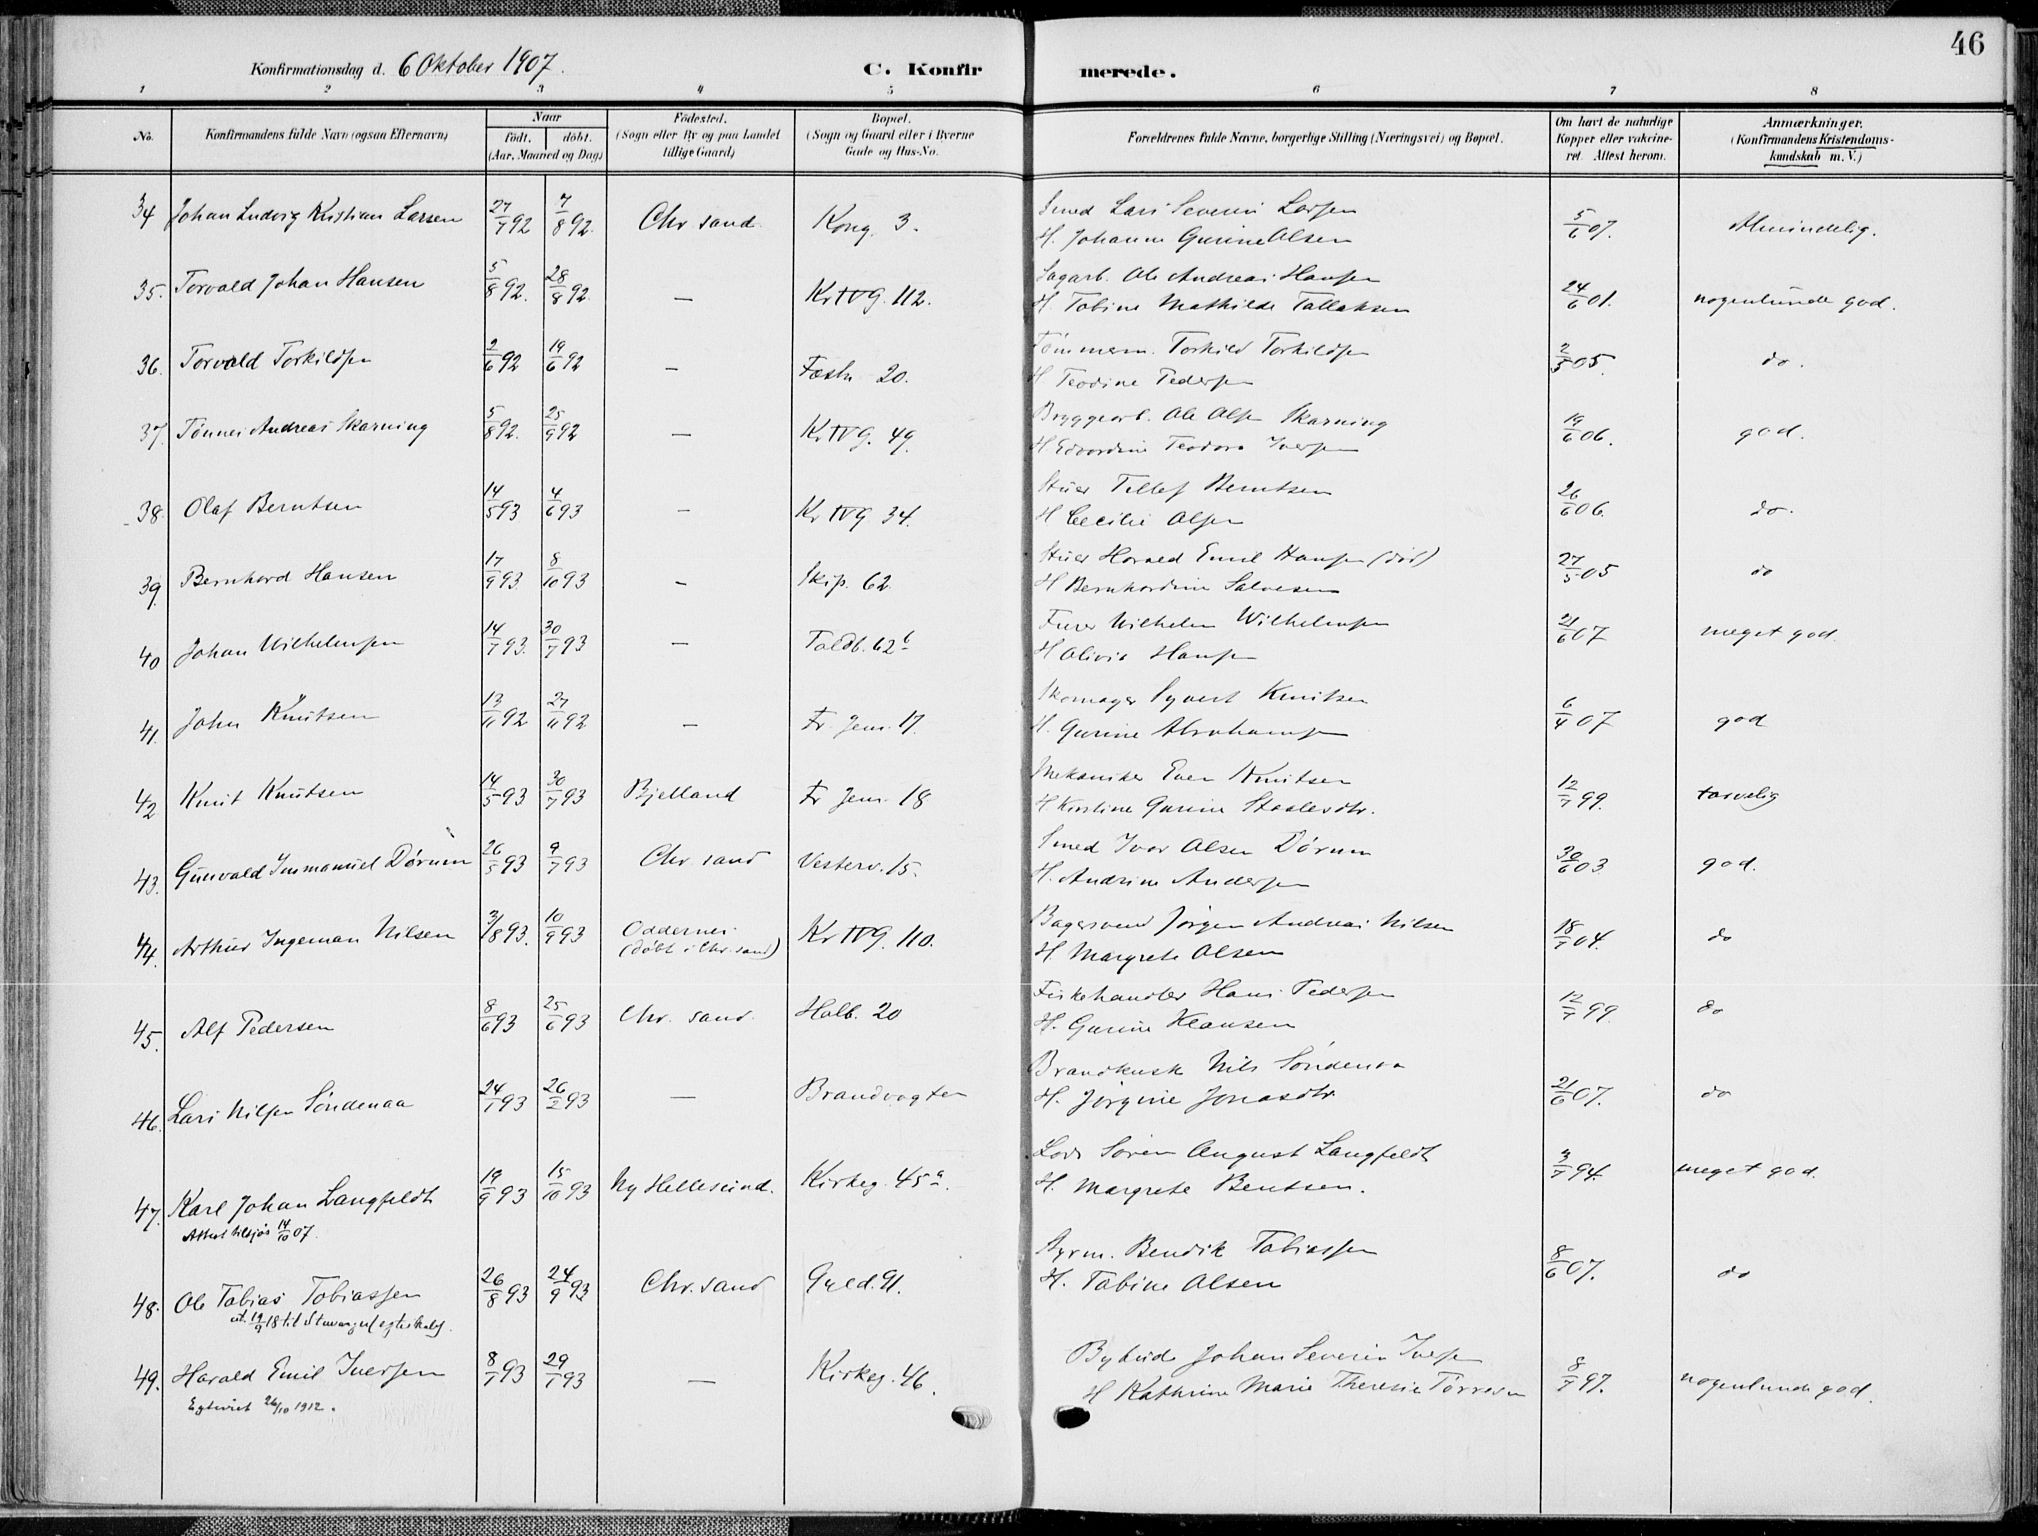 46
Konfirmationsdag d. 6 Oktober 1907.
C. Konfirmerede.
1 2 3 4 5 6 7 8
No.
Konfirmandens fulde Navn (ogsaa Efternavn)
Naar
født. døbt.
(Aar, Maaned og Dag)
Fødested.
(Sogn eller By og paa Landet
tillige Gaard)
Bopæl.
(Sogn og Gaard eller i Byerne
Gade og Hus-No.
Forældrenes fulde Navne, borgerlige Stilling (Næringsvei) og Bopæl.
Om havt de naturlige
Kopper eller vakcine-
ret. Attest herom.
Anmærkninger.
(Konfirmandens Kristendoms-
kundskab m. V.)
34 Johan Ludvig Kristian Larsen 27/7 92 7/8 92. Chr sand Kong. 3. Smed Lars Severin Larsen 5/6 07. Almindelig.
H. Johanne Gurine Olsen
35. Torvald Johan Hansen 5/8 92. 28/8 92. — Kr IV G. 112. Sagarb. Ole Andreas Hansen 24/6 01. nogenlunde god.
H. Tobine Mathilde Tallaksen
36. Torvald Torkildsen 2/6 92 19/6 92 — Festn 20. Tømmerm. Torkild Torkildsen 2/5 05. do.
H Teodine Pedersen
37. Tønnes Andreas Skarning 5/8 92. 25/9 92 — Kr IV G. 49. Bryggearb. Ole Olsen Skarning 19/6 06. god.
H Edvardine Teodora Iversen
38. Olaf Berntsen 14/5 93 4/6 93 — Kr IV G 34. Stuer Tellef Berntsen 26/6 06. do.
H Cecilie Olsen
39. Bernhard Hansen 17/9 93. 8/10 93 — Skip. 62. Stuer Harald Emil Hansen (død) 27/5 05 do
H Bernhardine Salvesen
40 Johan Wilhelmsen 14/7 93. 30/7 93 — Toldb. 62 b Furer Wilhelm Wilhelmsen 21/6 07 meget god.
H Olivia Hansen
41. John Knutsen 13/11 92 27/11 92 — Fr. Jens. 17. Skomager Syvert Knutsen 6/4 07 god
H. Gurine Abrahamsen
42 Knut Knutsen 14/5 93 30/7 93 Bjelland Fr Jens. 18 Mekaniker Even Knutsen 12/7 99. tarvelig
H. Kirstine Gurine Staalesdtr.
43. Gunvald Immanuel Dørum 26/5 93 9/7 93 Chr. sand Vesterv. 15. Smed Ivar Olsen Dørum 30/6 03 god.
H. Andrine Andersen
44. Arthur Ingeman Nilsen 3/8 93. 10/9 93 Oddernes Kr IV G. 110. Bagersvend Jørgen Andreas Nilsen 18/7 04. do
(døbt i Chr. sand) H. Margrete Olsen
45. Alf Pedersen 8/6 93 25/6 93 Chr. sand. Holb. 20 Fiskehandler Hans Pedersen 12/7 99. do
H. Gurine Klausen
46. Lars Nilsen Søndenaa 24/1 93 26/2 93 — Brandvagten Brandkusk Nils Søndenaa 21/6 07. do
H. Jørgine Jonasdtr
47. Karl Johan Langfeldt 19/9 93 15/10 93 Ny Hellesund. Kirkeg. 45 a. Lods Søren August Langfeldt 3/7 94. meget god.
Attest tilsjøs 14/10 07. H. Margrete Bentsen.
48. Ole Tobias Tobiassen 26/8 93 24/9 93 Chr. sand Gyld. 91. Fyrm. Bendik Tobiassen 8/6 07. do
ut. 19/9 18 til Stavanger H. Tabine Olsen
49. Harald Emil Iversen 8/1 93 29/1 93 — Kirkeg. 46. Bybude Johan Severin Iversen 8/7 97. nogenlunde god.
Egteviet 26/10 1912. H Kathrine Marie Theresie Tørresen